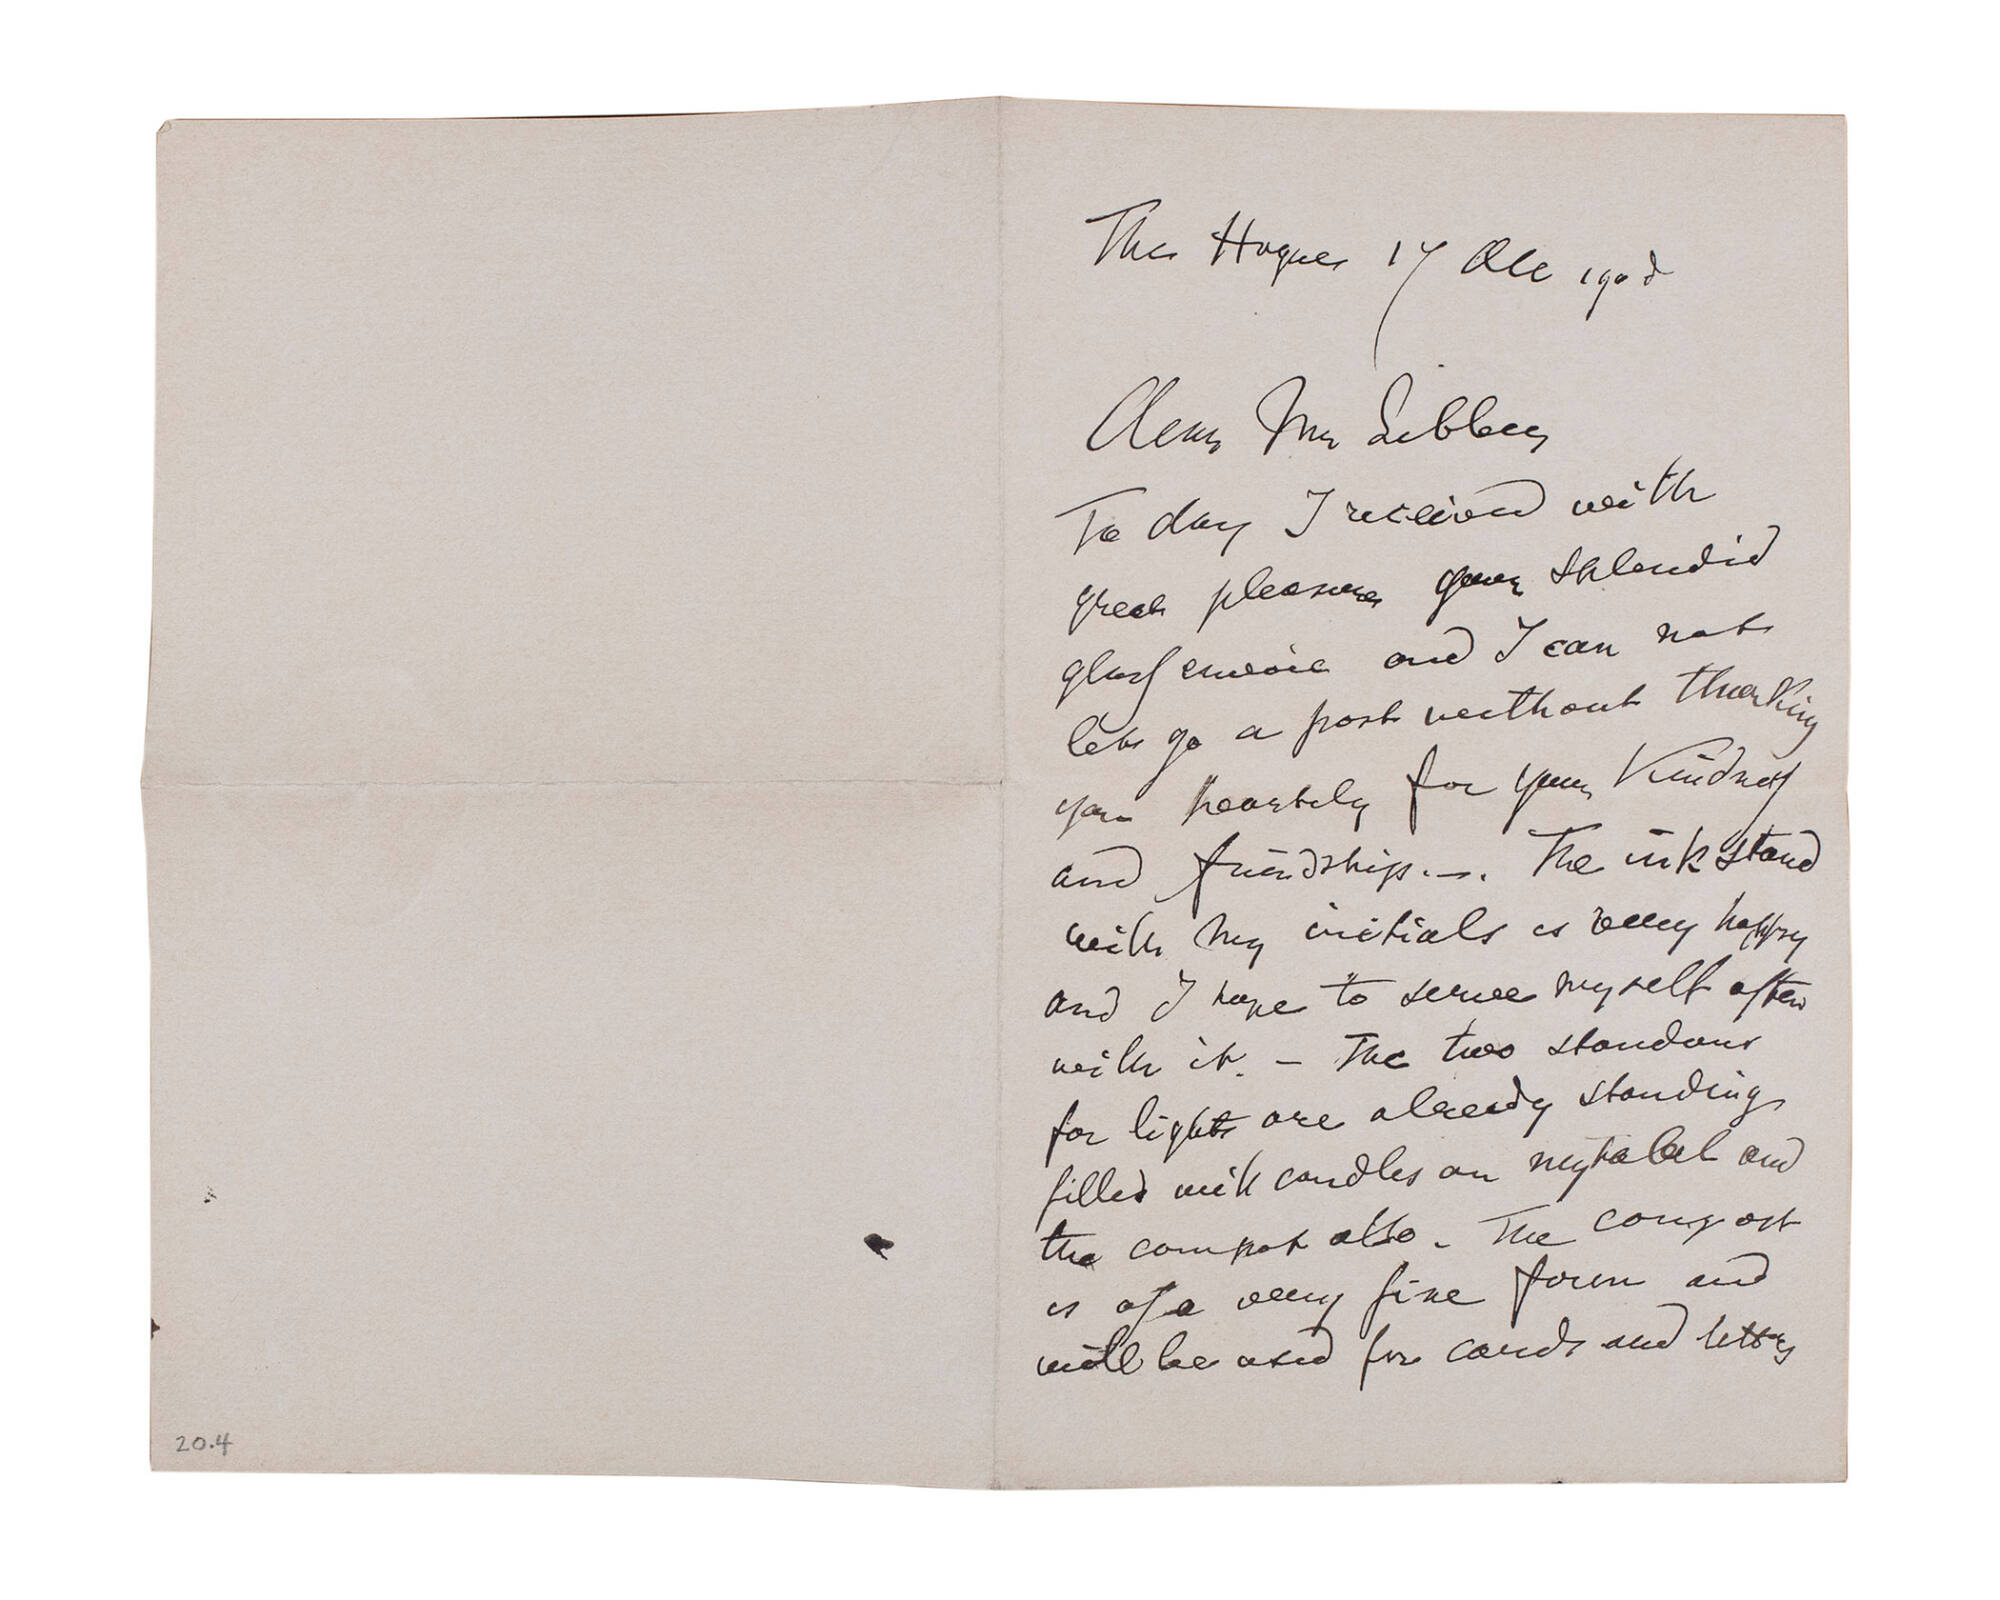 The Hague 17 Dec 190
Dear Mr Libbey
To day I received with
great pleasure your splendid
glass envoie and I can not
let go a post without thanking
you heartely for your Kindness
and friendship. —. The inkstand
with my initials is very happy
and I hope to serve myself often
with it. — The two standars
for lights are already standing
filled with candles on my tabel and
the compot also — The compost
is of a very fine form and
will be used for cards and letters
20.4